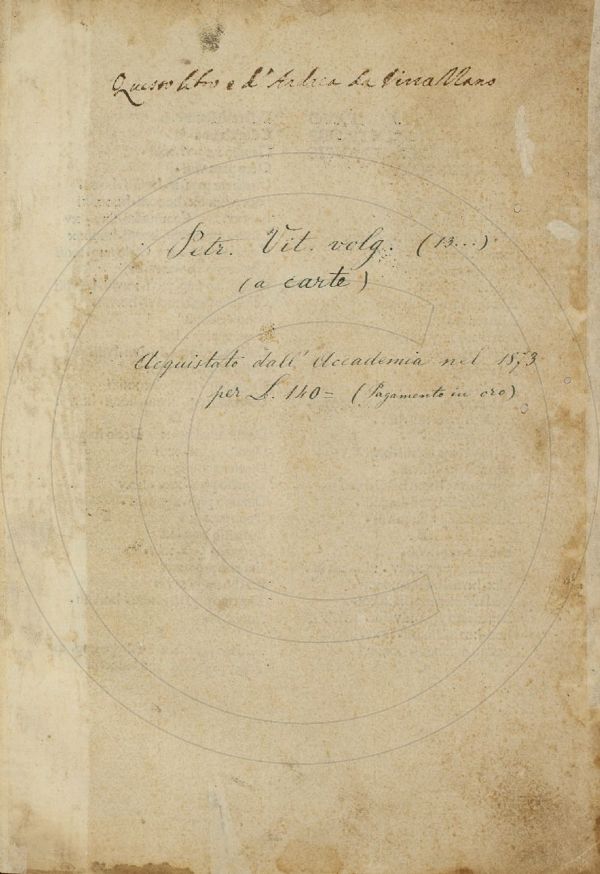 Questo libro e d' Andrea da
Petr. Vit. volg. (13...)
(a carte)
Acquistato dall' Accademia nel 1873
per L. 140= (Pagamento in oro)